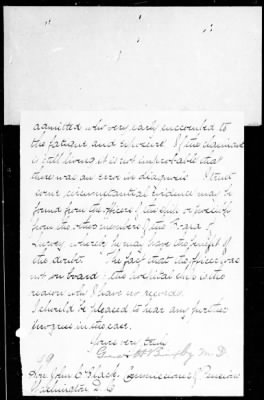 admitted who very early succumbed to
the fatigue and exposure. If the claimant
is still living, it is not improbable that
there was an error in diagnosis. I trust
some circumstantial evidence may be
found from the officers of the
from the other members of the Board of
Survey whereby he may have the benefit of
the doubt. The fact that the officer was
not on board the hospital ship is the
reason why I have no records.
I should be pleased to hear any further
progress in the case.
Yours very truly
M.D.
Hon. John C. Black, Commissioner of Pensions
Washington D.C.